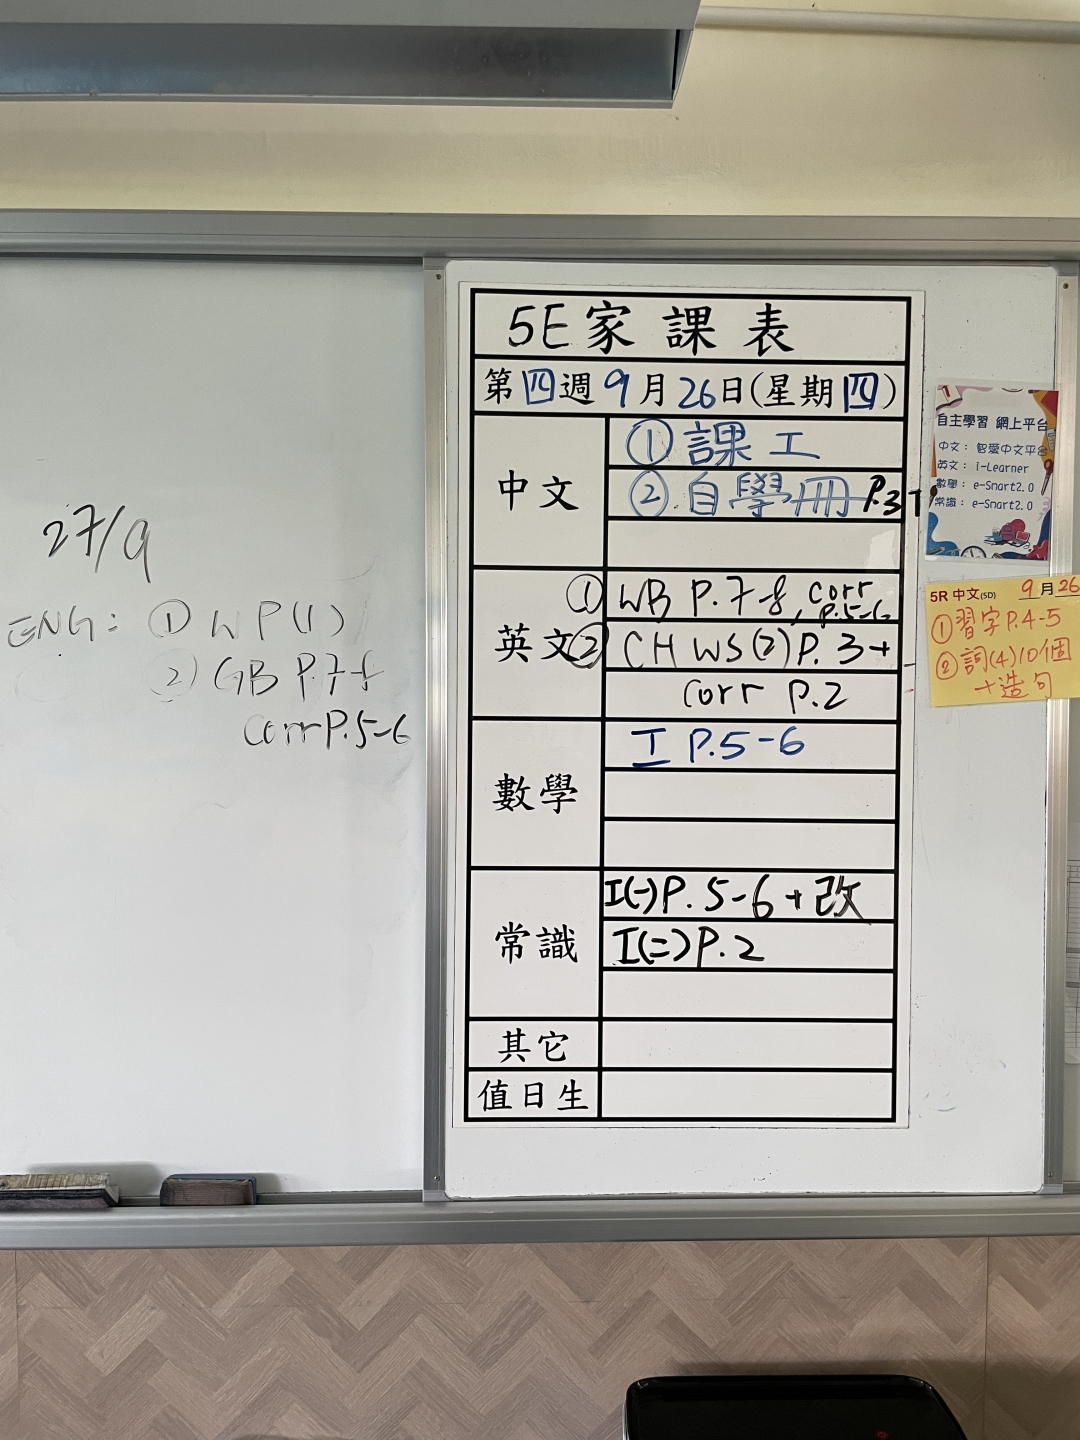 27/9
ENG: ① WP(1)
2) GB P.7-8
corr P.5-6
5E家課表
第四週9月26日(星期四)
中文
① 課工
② 自學冊 P.3
英文
① WB P.7-8, corr P.5-6
② CH WS(2) P.3+
corr P.2
數學
工 P.5-6
常識
工(一)P.5-6+改
工(二)P.2
其它
值日生
自主學習 網上平台
中文： 智愛中文平台
英文： i-Learner
數學： e-Smart2.0
常識： e-Smart2.0
5R 中文(5D) 9月26
①習字P.4-5
②詞(4)10個
+造句